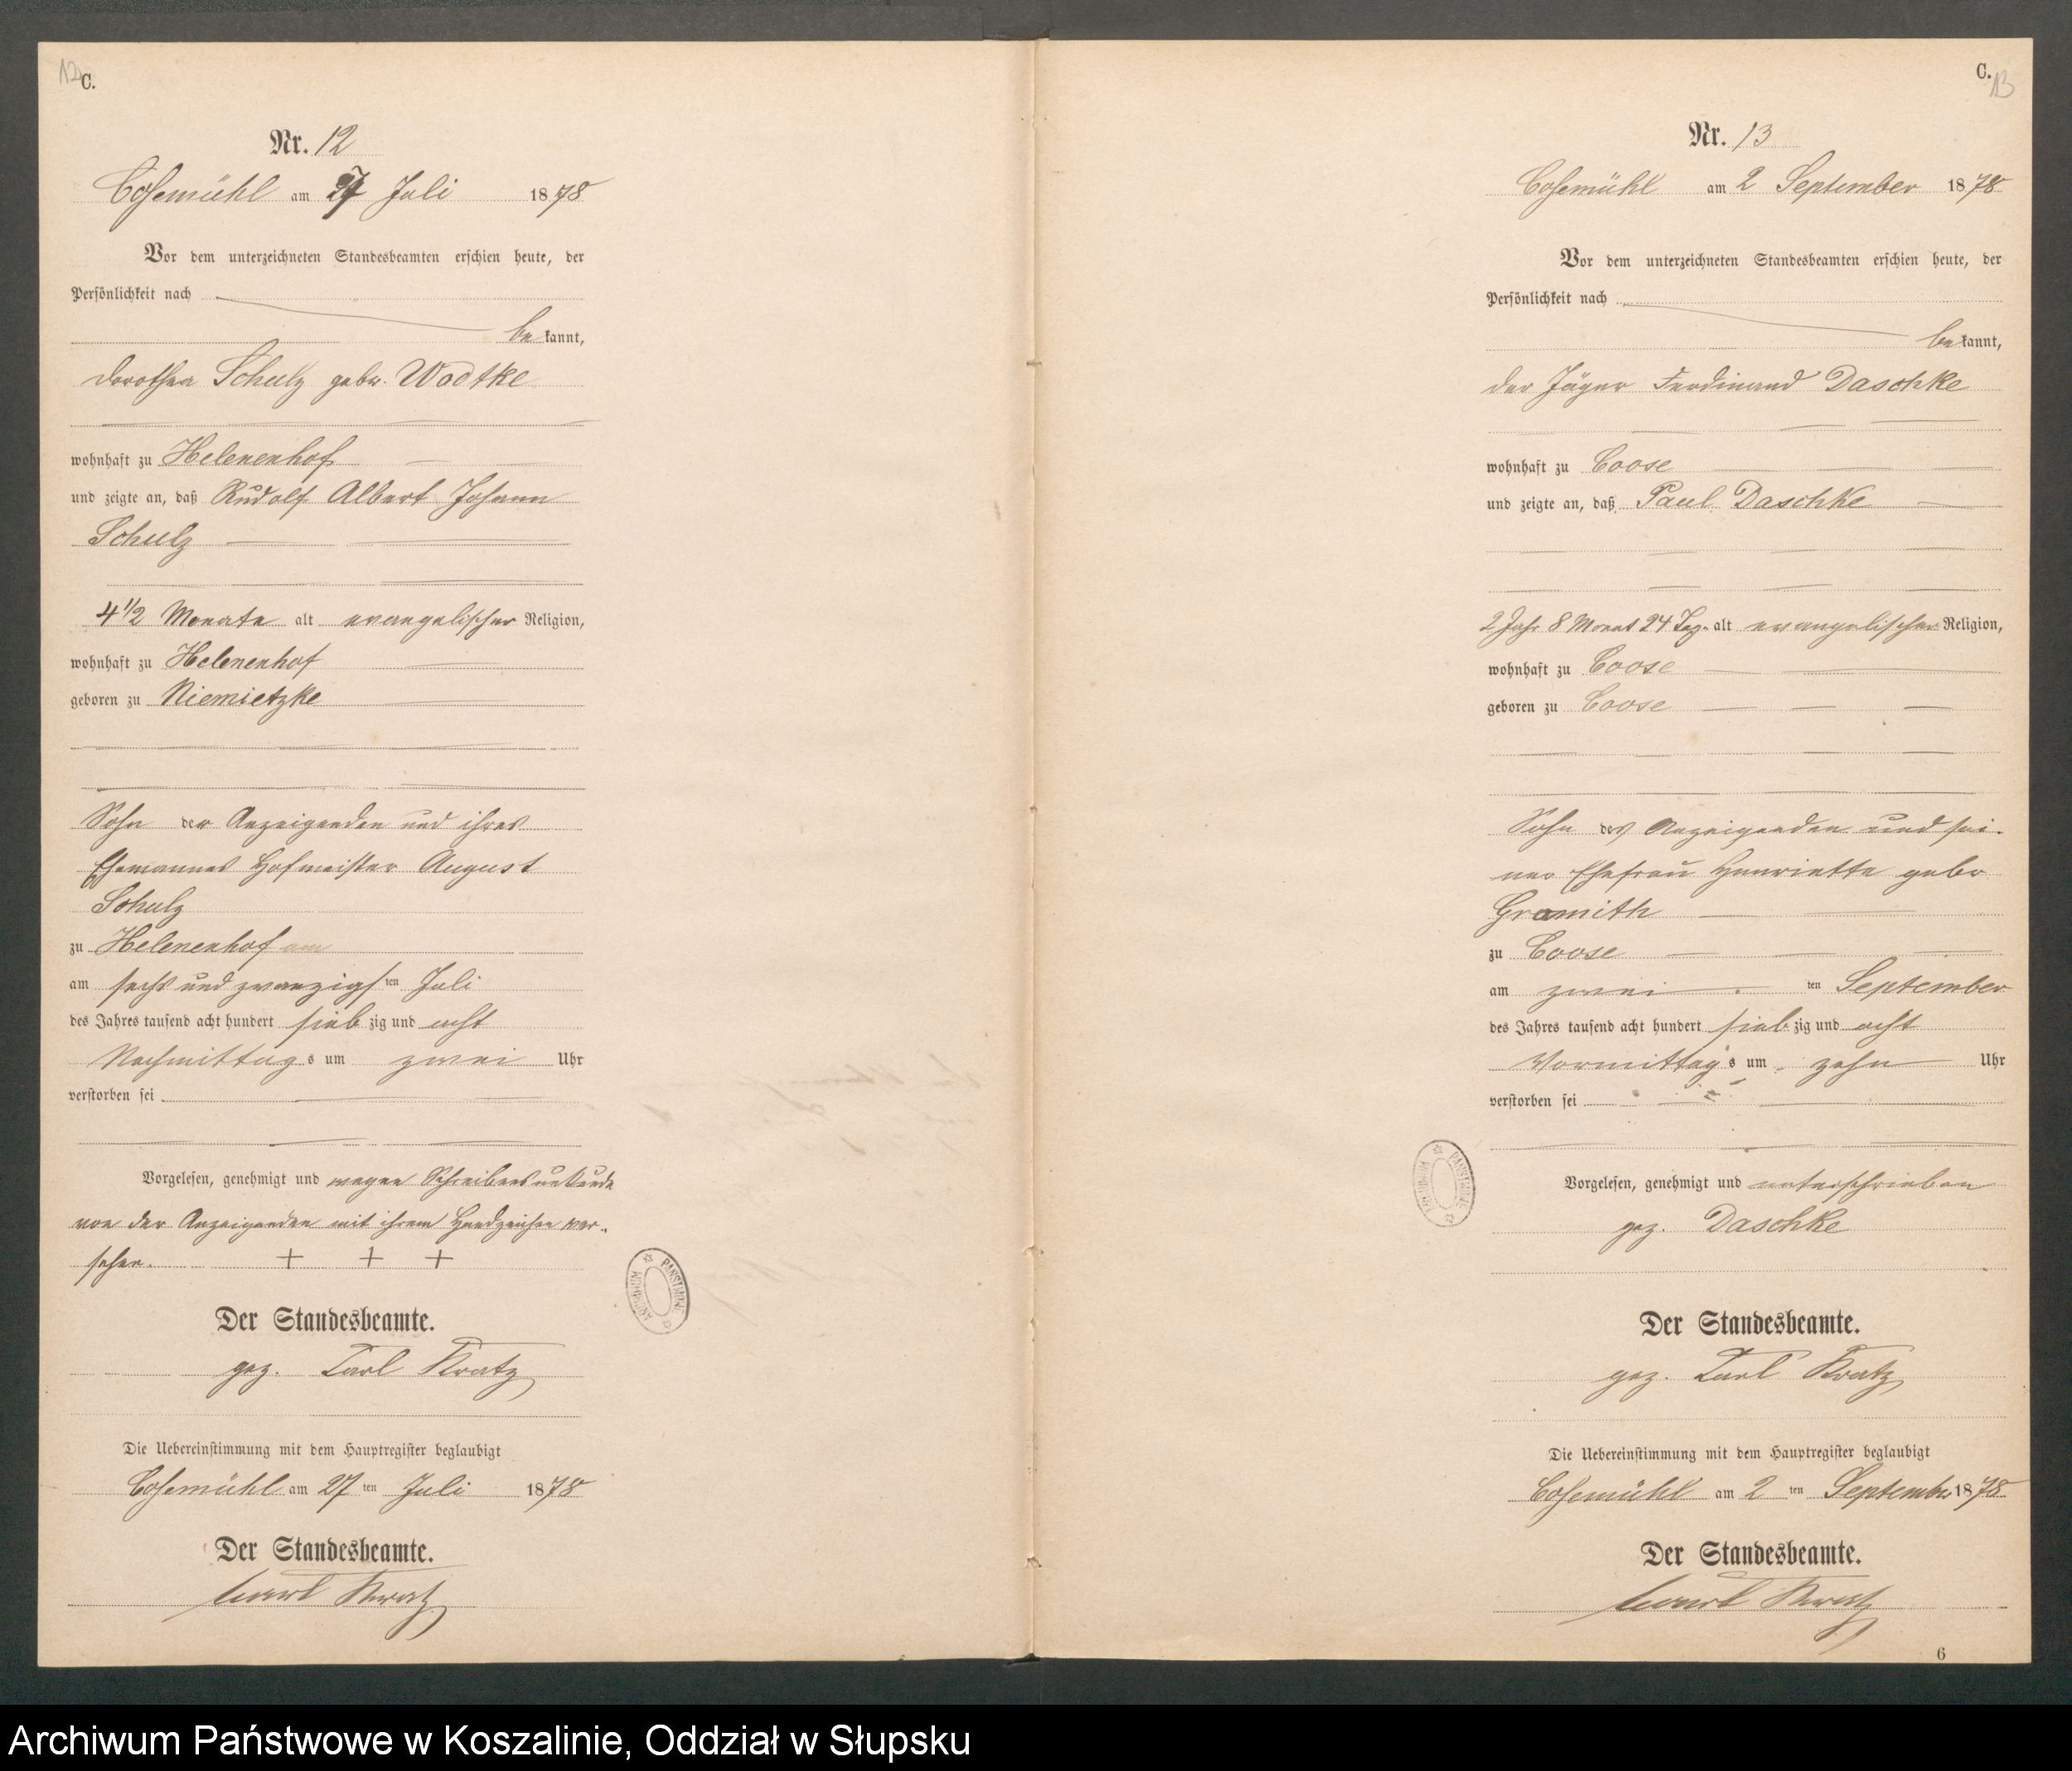 12
C.
Nr. 12
Cosemühl am 27 Juli 1878
Vor dem unterzeichneten Standesbeamten erschien heute, der
Persönlichkeit nach
be kannt,
Dorothea Schulz gebr. Wodtke
wohnhaft zu Helenenhof
und zeigte an, daß Rudolf Albert Johann
Schulz
4 1/2 Monate alt evangelischer Religion,
wohnhaft zu Helenenhof
geboren zu Niemietzke
Sohn der Anzeigenden und ihres
Ehemannes Hofmeister August
Schulz
zu Helenenhof am
am sechs und zwanzigs ten Juli
des Jahres tausend acht hundert sieb zig und acht
Nachmittag s um zwei Uhr
verstorben sei
Vorgelesen, genehmigt und wegen Schreibensunkunde
von der Anzeigenden mit ihrem Handzeichen ver-
sehen. + + +
Der Standesbeamte.
gez. Carl Kratz
Die Uebereinstimmung mit dem Hauptregister beglaubigt
Cosemühl am 27 ten Juli 1878
Der Standesbeamte.
Carl Kratz
ARCHIWUM PAŃSTWOWE
C.
13
Nr. 13
Cosemühl am 2 September 1878
Vor dem unterzeichneten Standesbeamten erschien heute, der
Persönlichkeit nach
be kannt,
der Jäger Ferdinand Daschke
wohnhaft zu Coose
und zeigte an, daß Paul Daschke
2 Jahr 8 Monat 24 Tag alt evangelischer Religion,
wohnhaft zu Coose
geboren zu Coose
Sohn des Anzeigenden und sei-
ner Ehefrau Henriette gebr
Gramith
zu Coose
am zwei ten September
des Jahres tausend acht hundert sieb zig und acht
Vormittag s um zehn Uhr
verstorben sei
ARCHIWUM PAŃSTWOWE
Vorgelesen, genehmigt und unterschrieben
gez. Daschke
Der Standesbeamte.
gez. Carl Kratz
Die Uebereinstimmung mit dem Hauptregister beglaubigt
Cosemühl am 2 ten September 1878
Der Standesbeamte.
Carl Kratz
6
Archiwum Państwowe w Koszalinie, Oddział w Słupsku